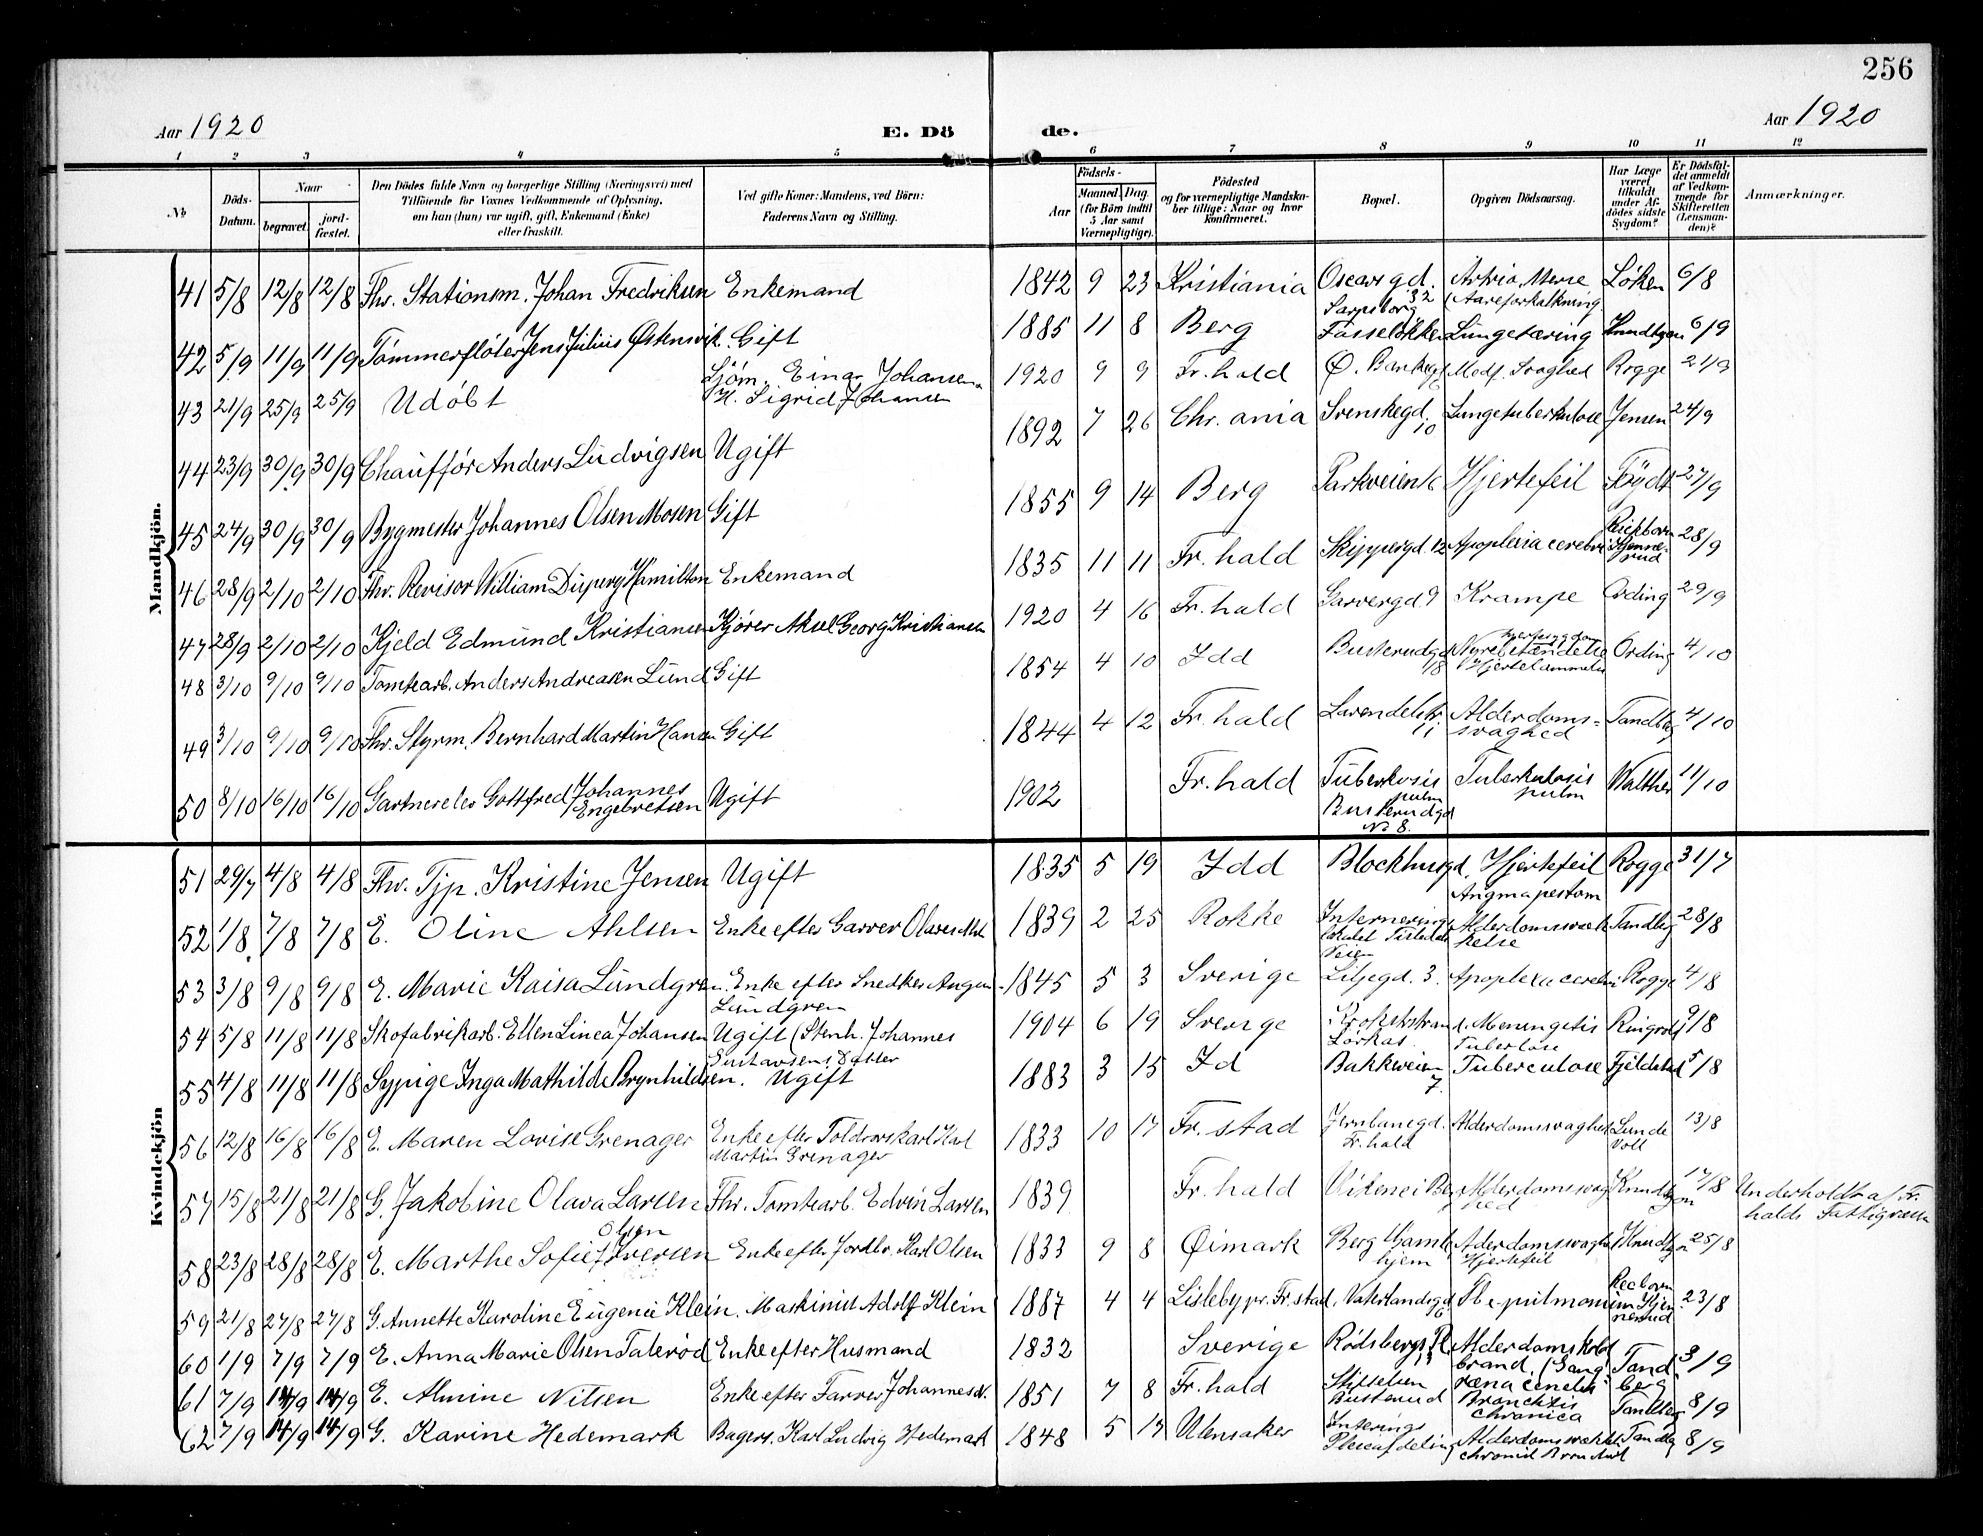 256
Aar 1920 E. Dö de. Aar 1920
1 2 3 4 5 6 7 8 9 10 11 12
№ Döds-Datum. Naar begravet. jord-fæstet. Den Dödes fulde Navn og borgerlige Stilling (Næringsvei) med Tilföiende for Voxnes Vedkommende af Oplysning, om han (hun) var ugift, gift, Enkemand (Enke) eller fraskilt. Ved gifte Koner: Mandens, ved Börn: Faderens Navn og Stilling. Aar Födsels- Maaned Dag (for Börn indtil 5 Aar samt Værnepligtige). Födested og for værnepligtige Mandskaber tillige: Naar og hvor konfirmeret. Bopæl. Opgiven Dödsaarsag. Har Læge været tilkaldt under Afdödes sidste Sygdom? Er Dödsfaldet anmeldt af Vedkommende for Skifteretten (Lensmanden)? Anmærkninger.
Mandkjön.
41 5/8 12/8 12/8 Fhv. Stationsm. Johan Fredriksen Enkemand 1842 9 23 Kristiania Oscarsgd. 32 Sarpsborg (Aareforkalkning Løken 6/8
42 5/9 11/9 11/9 Tømmerfløter Jens Julius Østensvik. Gift 1885 11 8 Berg Fosseløkken Lungetæring Knudtzon 6/9
43 21/9 25/9 25/9 Udøbt Sjøm. Einar Johansen H. Sigrid Johansen 1920 9 9 Fr.hald Ø. Bankegd Medf. Svaghed Rogge 21/9
44 23/9 30/9 30/9 Chauffør Anders Ludvigsen Ugift 1892 7 26 Chr.ania Svenskegd. 10 Lungetuberkulose Jensen 24/9
45 24/9 30/9 30/9 Bygmester Johannes Olsen Mosen Gift 1855 9 14 Berg Parkveien 16 Hjertefeil 27/9
46 28/9 2/10 2/10 Fhv. Revisor William Hamilton Enkemand 1835 11 11 Fr.hald Skippergd. 12 Apoplexia cerebri 28/9
47 28/9 2/10 2/10 Kjeld Edmund Kristiansen Kjører Aksel Georg Kristiansen 1920 4 16 Fr.hald Garvergd 9 Krampe Ording 29/9
48 3/10 9/10 9/10 Tomtearb. Anders Andreasen Lund Gift 1854 4 10 Idd Busterudgd 18 Nyrebetændelse Hjertelammelse Ording 4/10
49 3/10 9/10 9/10 Fhv. Styrm. Bernhard Martin Hansen Gift 1844 4 12 Fr.hald Lavendelstr. 11 Alderdoms-svaghed Tandberg 4/10
50 8/10 16/10 16/10 Gartnerelev Gottfred Johannes Engebretsen Ugift 1902 Fr.hald Tuberkosis pulm Busterudgd No 8. Tuberkulosis pulm Walther 11/10
Kvindekjön
51 29/7 4/8 4/8 Fhv. Tjp. Kristine Jensen Ugift 1835 5 19 Idd Blockhusgd. Hjertefeil Rogge 31/7
52 1/8 7/8 7/8 E. Oline Ahlsen Enke efter Garver 1839 2 25 Rokke Internerings lokalet Tistedals Veien Alderdomssvækkelse Tandberg 28/8
53 3/8 9/8 9/8 E. Marie Kaisa Lundgren. Enke efter Snedker August Lundgren 1845 5 3 Sverige Liljegd. 3. Apoplexia cerebri Rogge 4/8
54 5/8 11/8 11/8 Skofabrikarb. Ellen Linea Johansen Ugift (Stenh. Johannes Gustavsens Datter 1904 6 19 Sverige Krokstrand. Lörkas. Meningetis Tuberlose Ringvold 9/8
55 4/8 11/8 11/8 Sypige Inga Mathilde Brynhildsen. Ugift 1883 3 15 Id Bakkeveien 7. Tuberculose Fjeldstad 5/8
56 12/8 16/8 16/8 E. Maren Lovise Grenager Enke efter Toldrorskarl Karl Martin Grenager 1833 10 17 Fr.stad Jernbanegd. Fr.hald Alderdomssvaghed Lunde Voll 13/8
57 15/8 21/8 21/8 G. Jakobine Olava Larsen Fhv. Tomtearb. Edvin Larsen 1839 Fr.hald Viken i Berg Alderdomssvaghed Knudtzon 17/8 Underholdt af Fr.halds Fattigvæsen
58 23/8 28/8 28/8 E. Marthe Sofie Iversen Olsen Enke efter Jordbr. Karl Olsen 1833 9 8 Øimark Berg Gamlehjem Alderdomssvaghed Hjertefeil Knudtzon 25/8
59 21/8 27/8 27/8 G. Annette Karoline Eugenie Klein. Maskinist Adolf Klein 1887 4 4 Lisleby pr. Fr.stad. Vaterlandsgd 6 Tbc pulmonum 23/8
60 1/9 7/9 7/9 E. Anna Marie Olsen Talerød Enke efter Husmand 1832 Sverige Rödsbergs Pl Alderdomskoldbrand. Tandberg 3/9
61 7/9 14/9 14/9 E. Almine Nilsen Enke efter Farver Johannes N. 1851 7 8 Fr.hald Stiftelsen Busterud Bronchtis chronica Tandberg 8/9
62 7/9 14/9 14/9 G. Karine Hedemark Bagerm. Karl Ludvig Hedemark 1848 5 17 Ulensaker Pleieafdeling Alderdomssvækkelse Tandbg 8/9